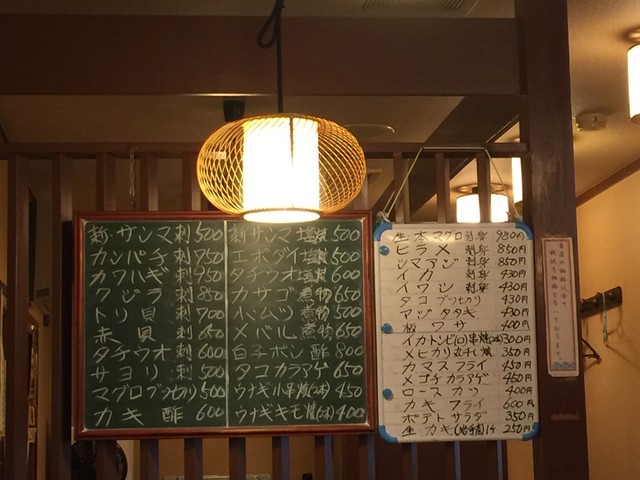 新サンマ刺500
カンパチ刺950
カワハギ刺950
クジラ刺850
トリ貝刺700
赤貝刺650
タチウオ刺600
サヨリ刺500
マグロブツセリ500
カキ酢600
新サンマ塩焼500
エボダイ塩焼500
タチウオ塩焼600
カサゴ煮物650
小ムツ煮物500
メバル煮物650
白子ポン酢800
タコカラアゲ650
ウナギ小串焼(2本)450
ウナギキモ焼(2本)400
生本マグロ刺身980円
ヒラメ刺身850円
シマアジ刺身850円
イカ刺身430円
イワシ刺身430円
タコブツセリ430円
アジタタキ430円
板ワサ400円
イカトンビ(口)串焼(2本)300円
メヒカリ丸干し焼350円
カマスフライ450円
メゴチカラアゲ450円
ロースカツ400円
カキフライ600円
ポテトサラダ350円
生カキ(岩手産)1ケ250円